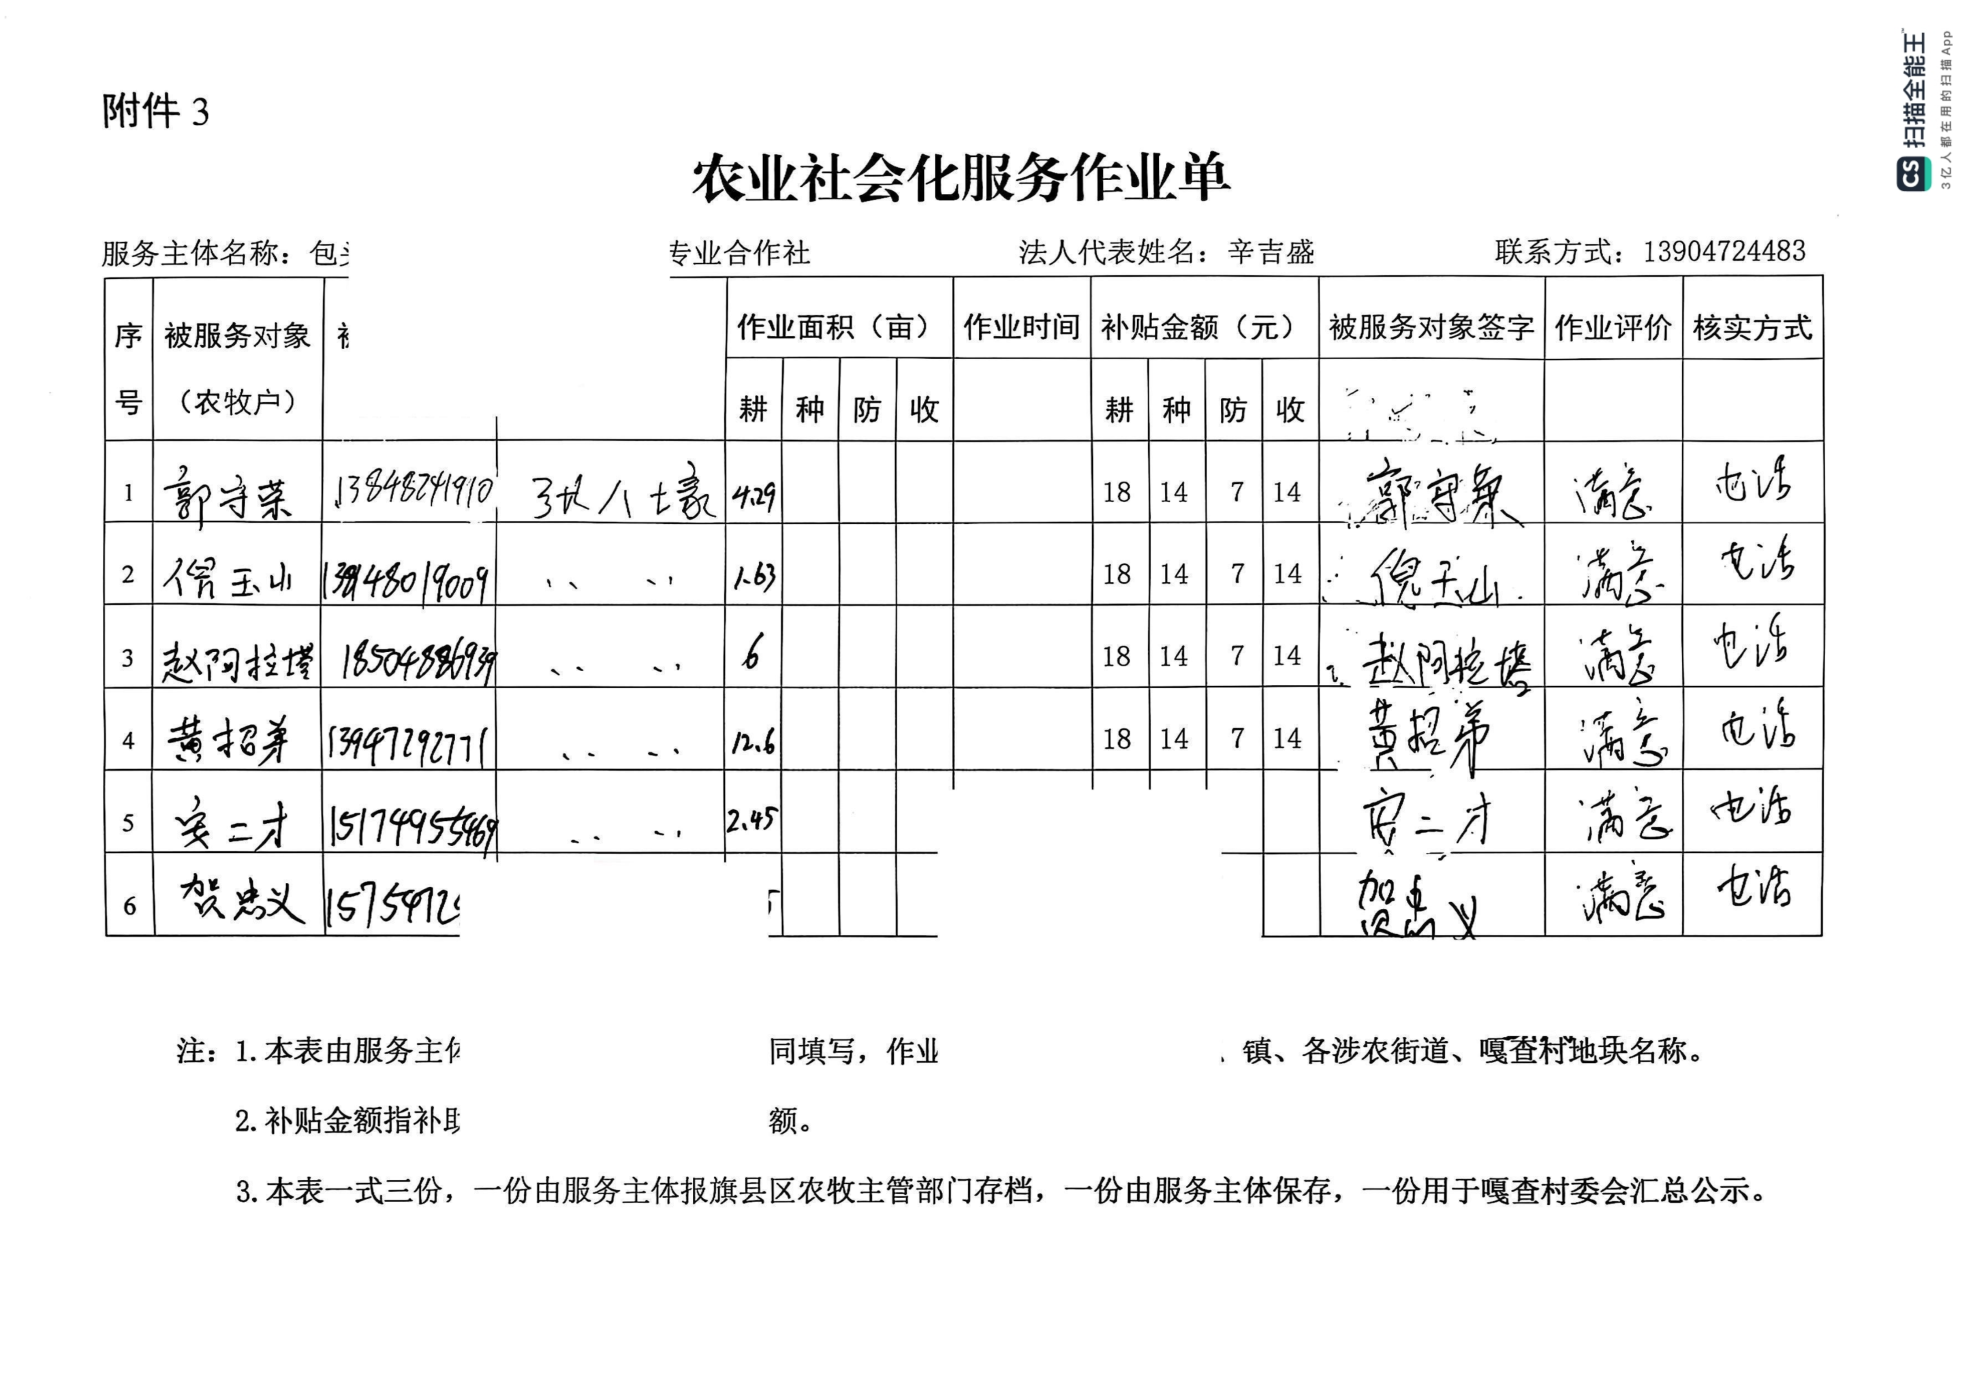 CS 扫描全能王
3亿人都在用的扫描App
附件 3
农业社会化服务作业单
服务主体名称：包 专业合作社 法人代表姓名：辛吉盛 联系方式：13904724483
序号 被服务对象（农牧户） 作业面积（亩） 作业时间 补贴金额（元） 被服务对象签字 作业评价 核实方式
耕 种 防 收 耕 种 防 收
1 郭守荣 13848241910 4.29 18 14 7 14 郭守荣 满意 电话
2 倪玉山 1.63 18 14 7 14 倪玉山 满意 电话
3 赵阿拉塔 18504886939 6 18 14 7 14 赵阿拉塔 满意 电话
4 黄招弟 13947292771 12.6 18 14 7 14 黄招弟 满意 电话
5 安二才 15174955469 2.45 安二才 满意 电话
6 贺忠义 1575472 贺忠义 满意 电话
注：1.本表由服务主 同填写，作业 镇、各涉农街道、嘎查村地块名称。
2.补贴金额指补 额。
3.本表一式三份，一份由服务主体报旗县区农牧主管部门存档，一份由服务主体保存，一份用于嘎查村委会汇总公示。